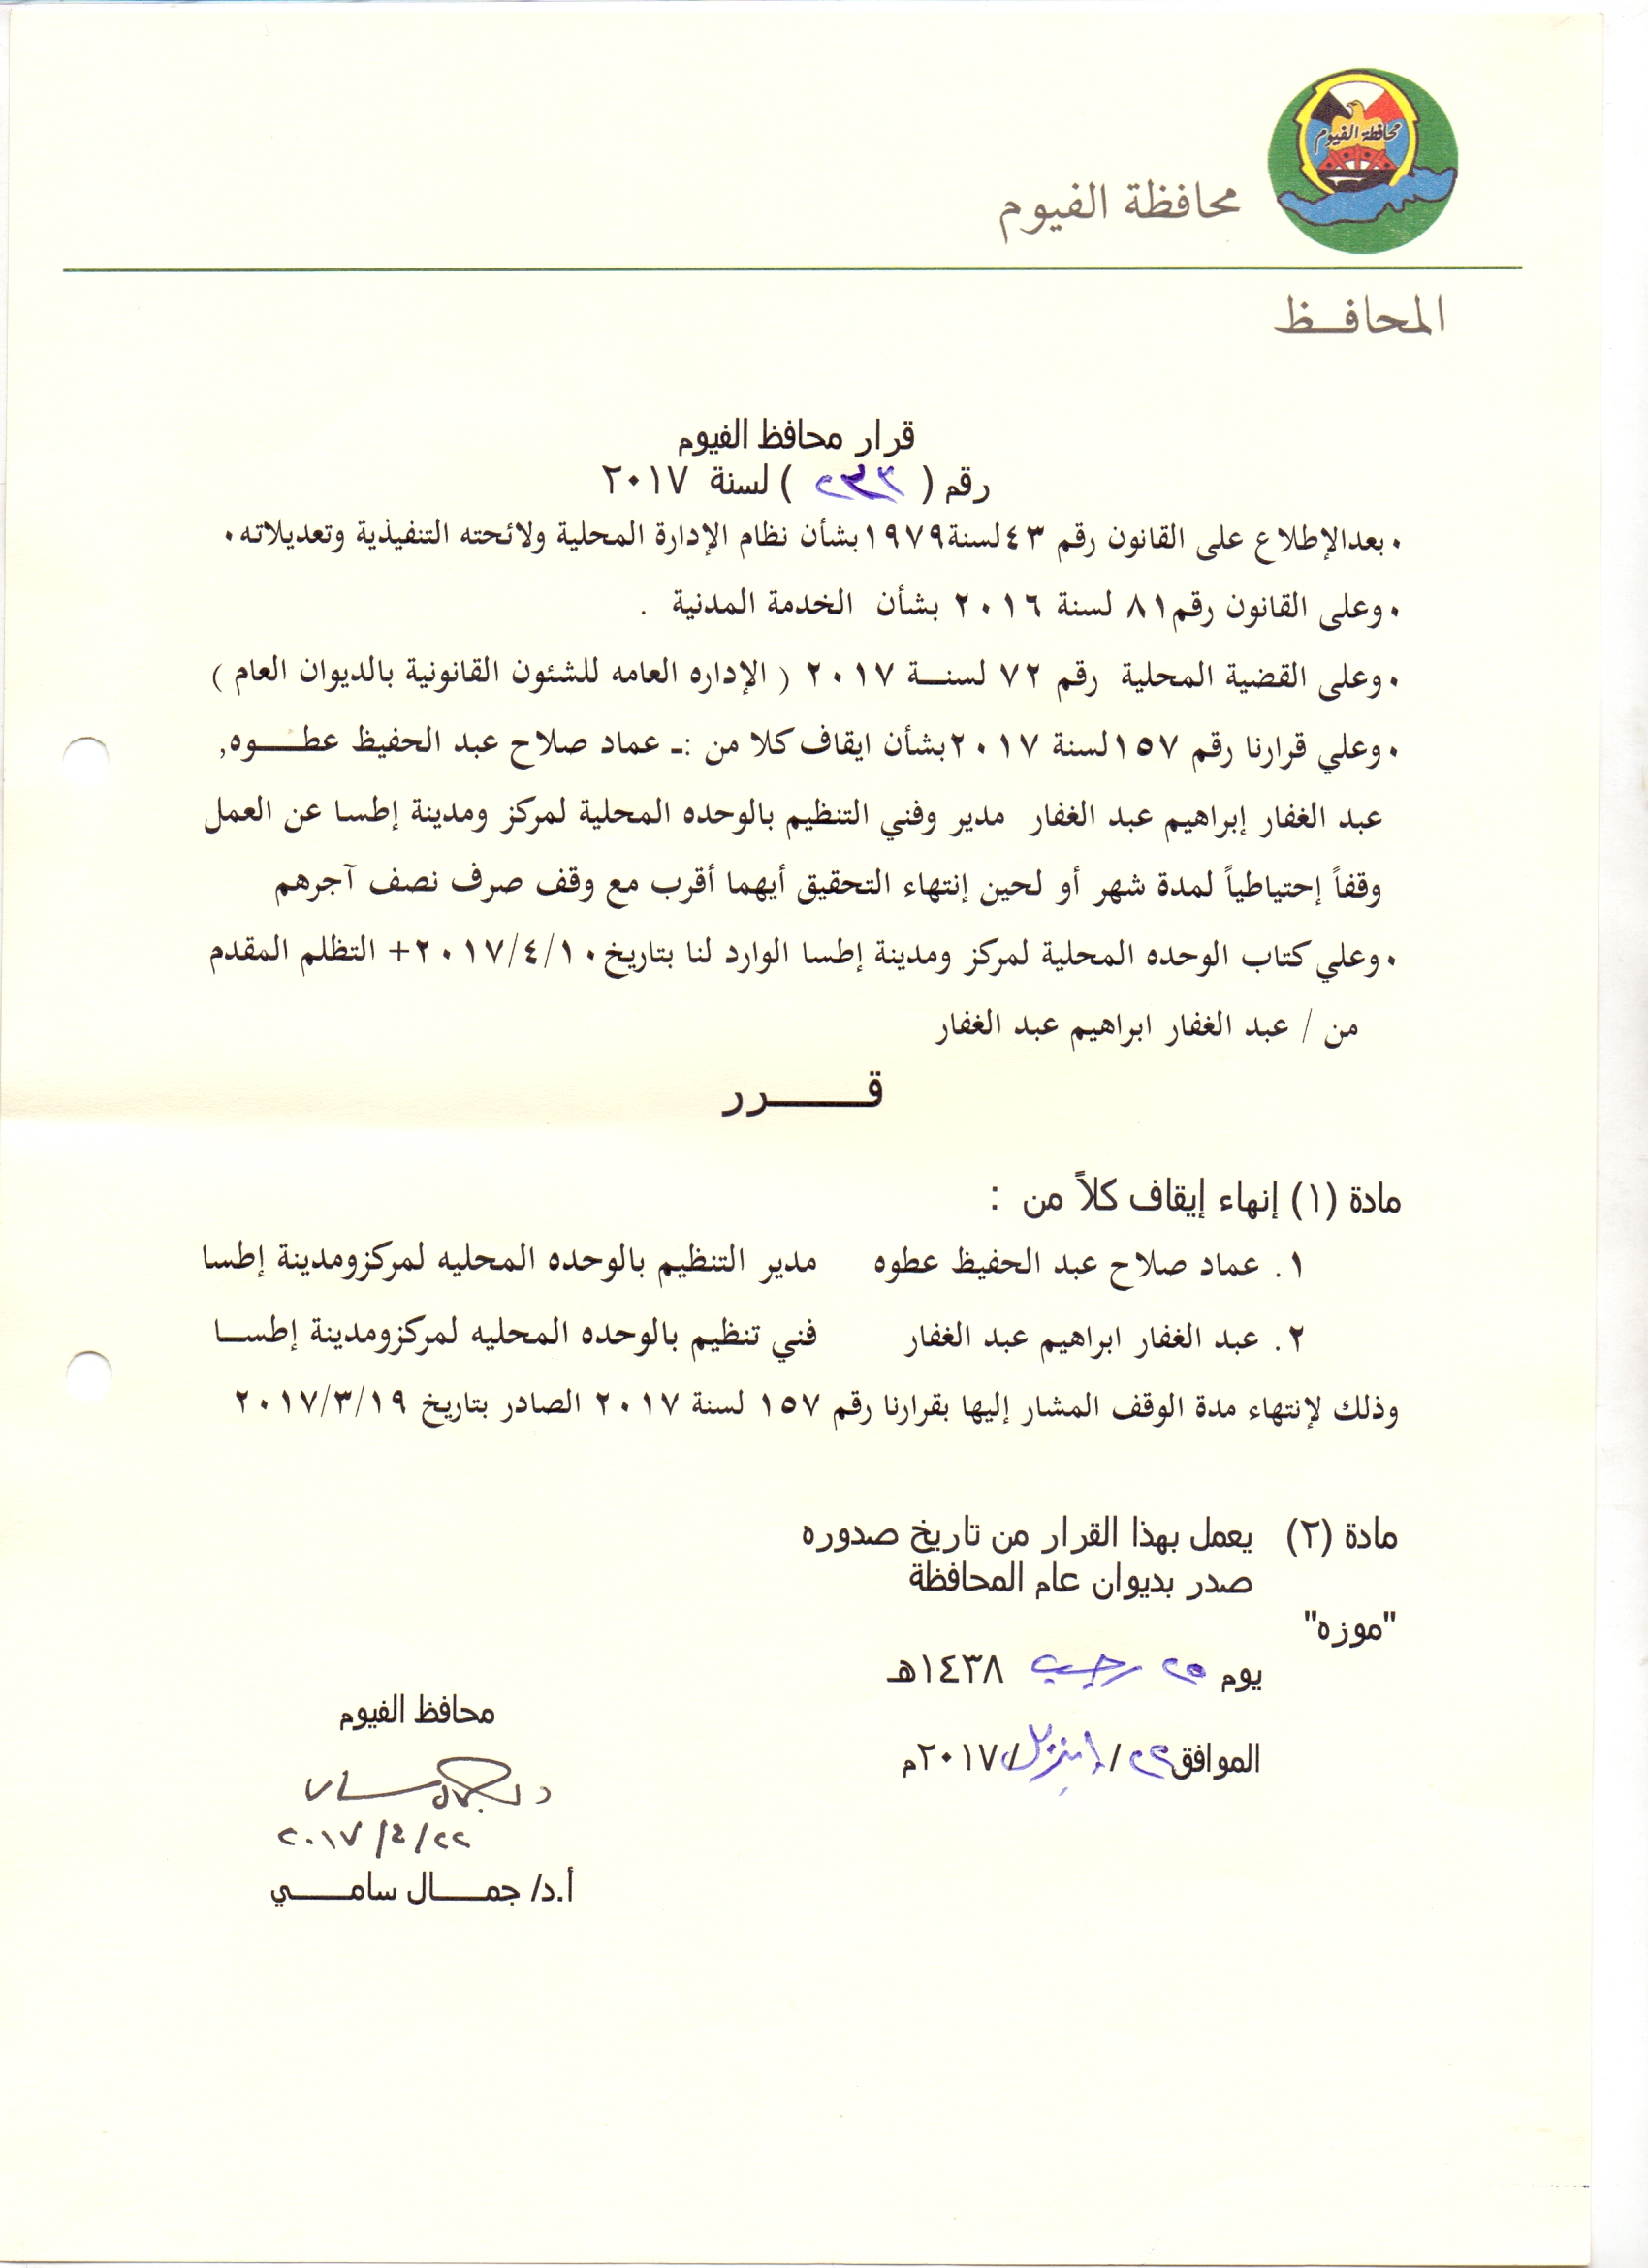 محافظة الفيوم
محافظة الفيوم
المحافــظ
قرار محافظ الفيوم
رقم ( ٢٣٣ ) لسنة ٢٠١٧
• بعدالإطلاع على القانون رقم ٤٣لسنة١٩٧٩بشأن نظام الإدارة المحلية ولائحته التنفيذية وتعديلاته•
• وعلى القانون رقم٨١ لسنة ٢٠١٦ بشأن الخدمة المدنية .
• وعلى القضية المحلية رقم ٧٢ لسنــة ٢٠١٧ ( الإداره العامه للشئون القانونية بالديوان العام )
• وعلي قرارنا رقم ١٥٧لسنة ٢٠١٧بشأن ايقاف كلا من :ـ عماد صلاح عبد الحفيظ عطــــوه,
عبد الغفار إبراهيم عبد الغفار مدير وفني التنظيم بالوحده المحلية لمركز ومدينة إطسا عن العمل
وقفاً إحتياطياً لمدة شهر أو لحين إنتهاء التحقيق أيهما أقرب مع وقف صرف نصف آجرهم
• وعلي كتاب الوحده المحلية لمركز ومدينة إطسا الوارد لنا بتاريخ٢٠١٧/٤/١٠+ التظلم المقدم
من / عبد الغفار ابراهيم عبد الغفار
قـــــــرر
مادة (١) إنهاء إيقاف كلاً من :
١. عماد صلاح عبد الحفيظ عطوه مدير التنظيم بالوحده المحليه لمركزومدينة إطسا
٢. عبد الغفار ابراهيم عبد الغفار فني تنظيم بالوحده المحليه لمركزومدينة إطســا
وذلك لإنتهاء مدة الوقف المشار إليها بقرارنا رقم ١٥٧ لسنة ٢٠١٧ الصادر بتاريخ ٢٠١٧/٣/١٩
مادة (٢) يعمل بهذا القرار من تاريخ صدوره
صدر بديوان عام المحافظة
"موزه"
يوم ٢٥ رجب ١٤٣٨هـ
الموافق٢٢ / ابريل/٢٠١٧م
محافظ الفيوم
د. جمال سامي
٢٠١٧/٤/٢٢
أ.د/ جمــــال سامـــــي